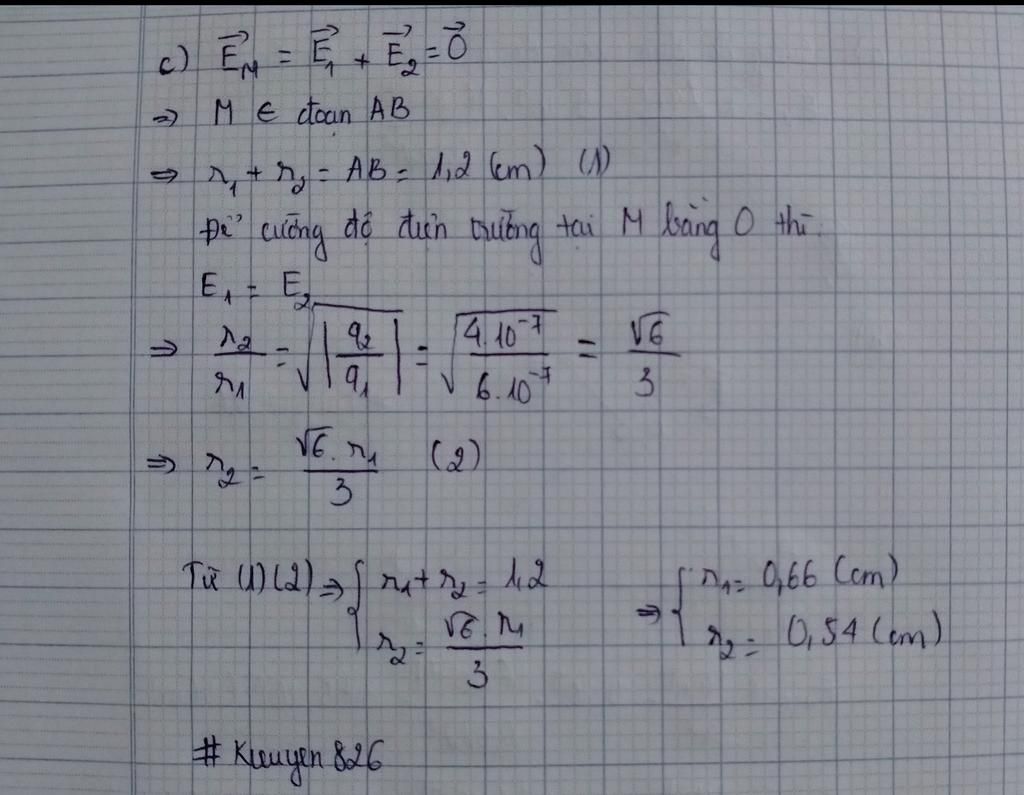 c) \vec{E}_M = \vec{E}_1 + \vec{E}_2 = \vec{0}
⇒ M ∈ đoạn AB
⇒ r₁ + r₂ = AB = 1,2 (cm) (1)
Để cường độ điện trường tại M bằng 0 thì
E₁ = E₂
⇒ r₂/r₁ = √|q₂/q₁| = √(4.10⁻⁷/6.10⁻⁷) = √6/3
⇒ r₂ = √6.r₁/3 (2)
Từ (1)(2) ⇒ { r₁ + r₂ = 1,2 ⇒ { r₁ = 0,66 (cm)
r₂ = √6.r₁/3 r₂ = 0,54 (cm)
# Kieuyen 826